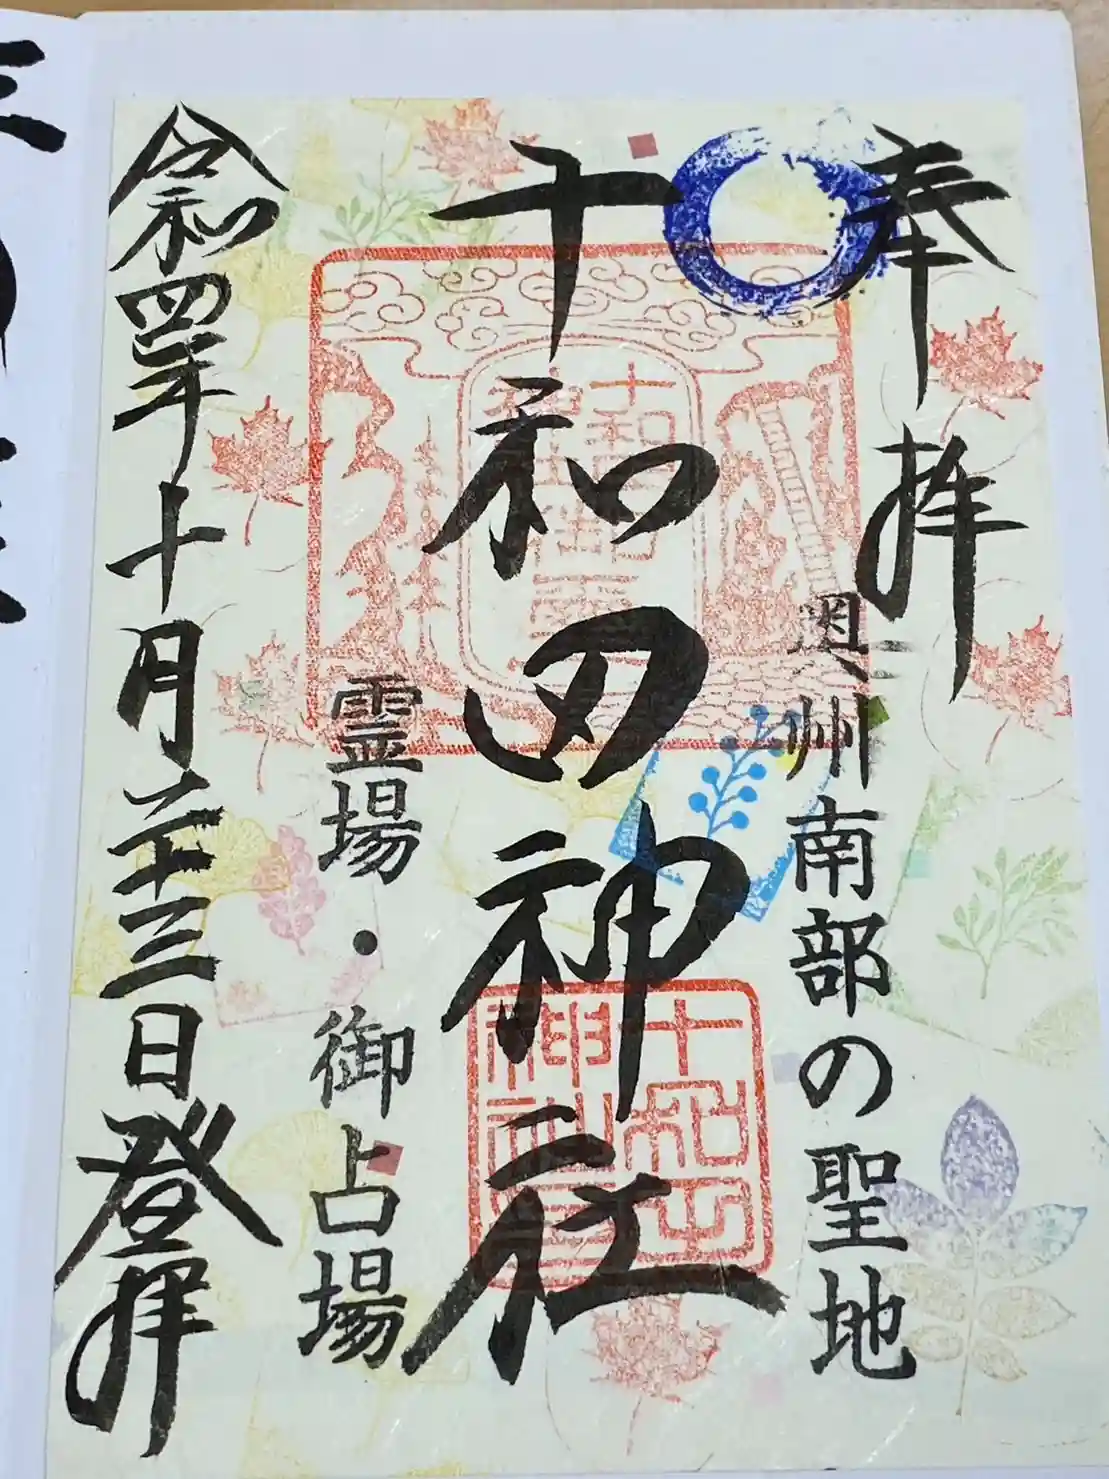 奉拝
奥州南部の聖地
十和田神社
霊場・御占場
令和四年十月二十三日登拝
十和田
神社